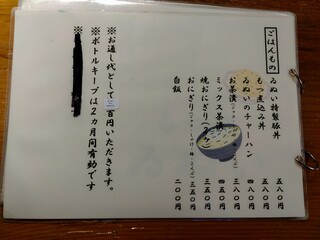 ごはんもの
ゐぬい特製豚丼 五八〇円
もつ煮込み丼 五八〇円
ゐぬいのチャーハン 四八〇円
お茶漬 三八〇円
ミックス茶漬 四五〇円
焼おにぎり(2ケ) 三五〇円
おにぎり 三五〇円
白飯 二〇〇円
※お通し代として三百円いただきます。
※ボトルキープは2カ月間有効です
※